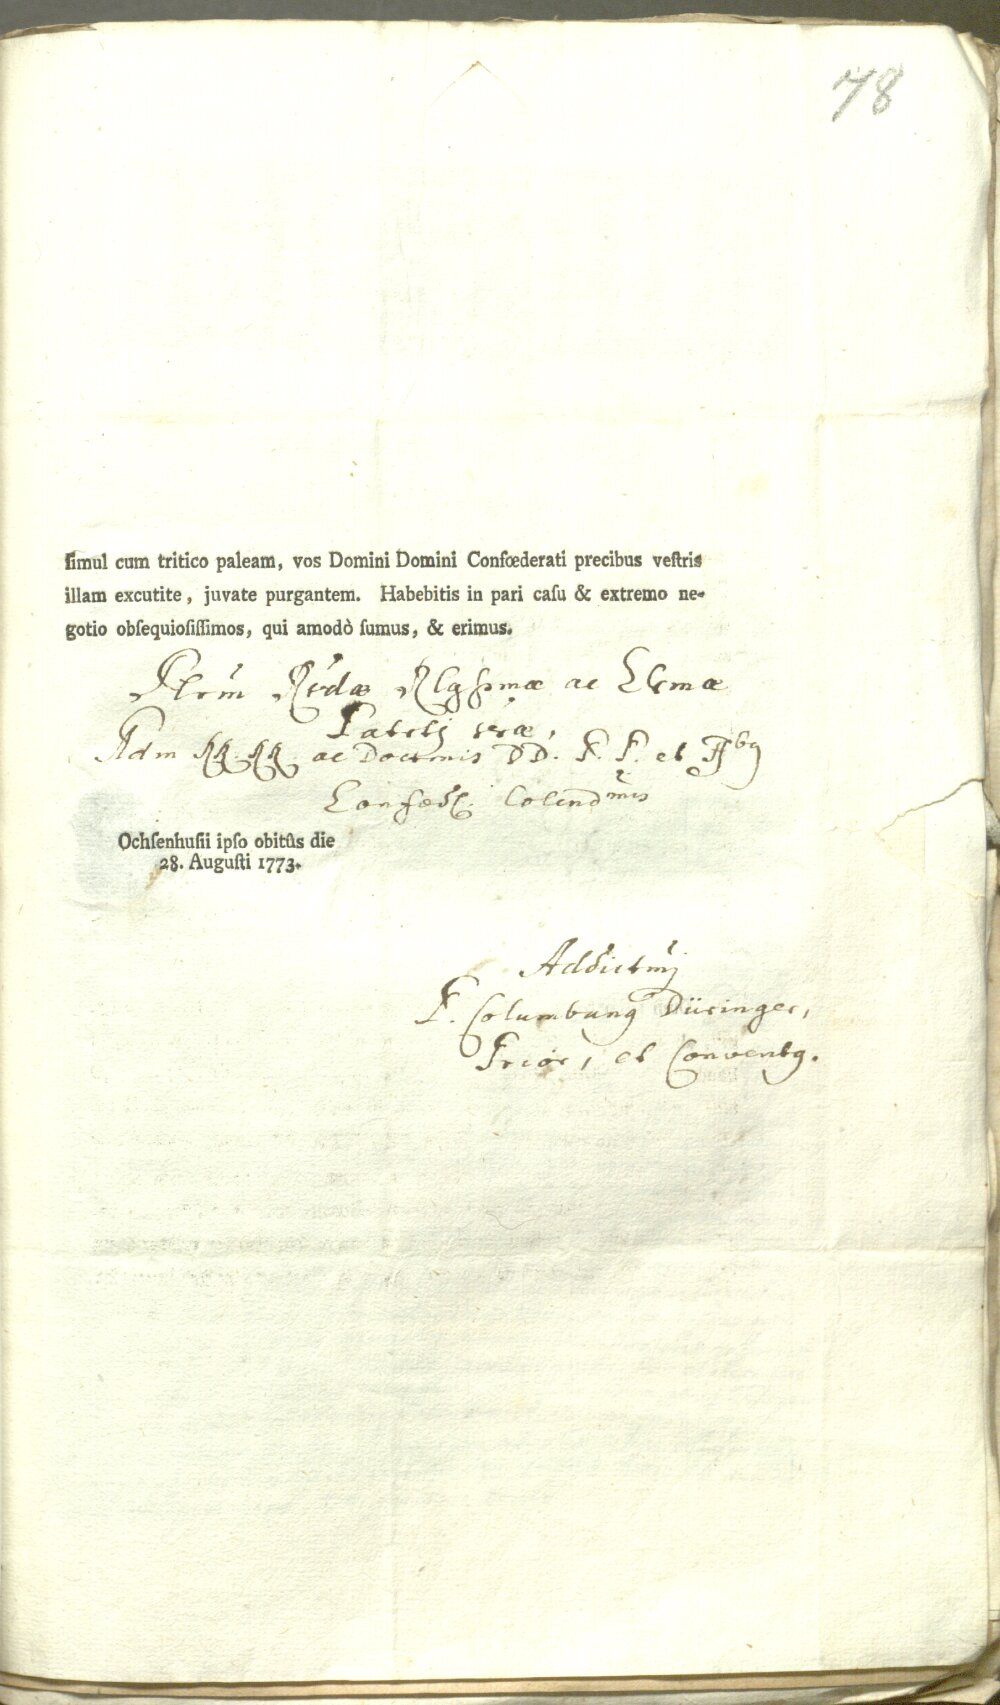 78
ſimul cum tritico paleam, vos Domini Domini Confœderati precibus veſtris
illam excutite, juvate purgantem. Habebitis in pari caſu & extremo ne-
gotio obſequioſiſſimos, qui amodò ſumus, & erimus.
Rvdæ ac
Adm RR. RR. ac Doctmis DD. P. P. et
Confœd. Colendmis
Ochſenhuſii ipſo obitûs die
28. Auguſti 1773.
Addictmi
P. Columbanꝰ Düringer,
Prior, et Conventꝰ.